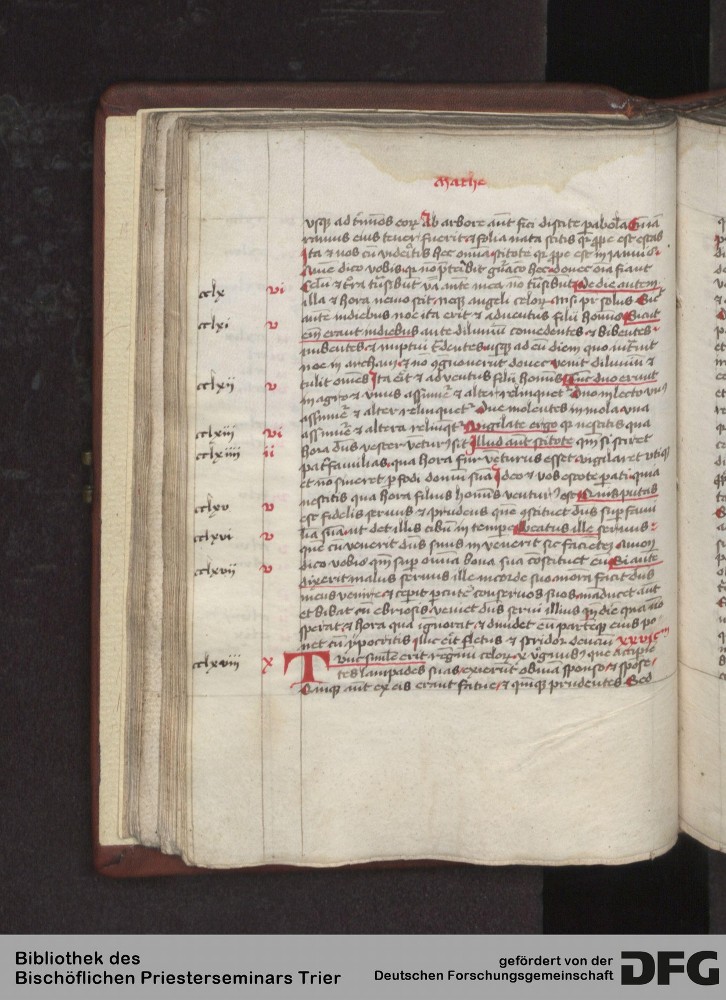 Mathe
usq ad tmos eoꝝ Ab arbore aut fici discite pabola Cu ia
ramus eius tener fuerit & folia nata scitis qr ppe est estas
Ita & vos cu videritis hec omnia scitote qr ppe est in ianuis
Ame dico vobis qr no pteribit gnaco hec donec oia fiant
cclx vi Celu & tra tasibut vba aute mea no tsibut De die autem
illa & hora nemo scit neq angeli celoꝝ nisi pr solus Sic
cclxi v aute in diebus noe ita erit & adventus filii hominis Sicut
em erant in diebus ante diluviu comedentes & bibentes
nubentes & nuptui tdentes usq ad eu diem quo intvit
noe in archam & no cognoverut donec venit diluviu &
cclxii v tulit omes Ita erit & adventus filii hominis Tuc duo erunt
in agro & unus assumet & alter relinquet Duo in lecto un
assumet & alter relinquet Due molentes in mola una
cclxiii vi assumet & altera relinqt Vigilate ergo qr nescitis qua
cclxiiii ii hora dns vester vetur sit Illud aut scitote qm si sciret
patfamilias qua hora fur veturus esset vigilaret utiq
et no sineret pfodi domu sua Ideo & vos estote pati quia
cclxv v nescitis qua hora filius hominis ventur est Quis putas
est fidelis servus & prudens que constituet dns sup fami
cclxvi v lia sua ut det illis cibu in tempe Beatus ille servus
que cu venerit dns suus invenerit sic faciete Amen
cclxvii v dico vobis qm sup omnia bona sua constituet eu Si aute
dixerit malus servus ille in corde suo mora facit dns
meus venire & ceperit pcute conservos suos maducet aut
et bibat cu ebriosis veniet dns servi illius in die qua no
sperat & hora qua ignorat & dividet eu parteq eius po
net cu ypocritis illic erit fletus & stridor denciu xxv
cclxviii x Tunc simile erit regnu celoꝝ x virginibus que accipie
tes lampades suas exierut obvia sponso & sponse
Quinq aut ex eis erant fatue & quinq prudentes Sed
Bibliothek des
Bischöflichen Priesterseminars Trier
gefördert von der
Deutschen Forschungsgemeinschaft
DFG